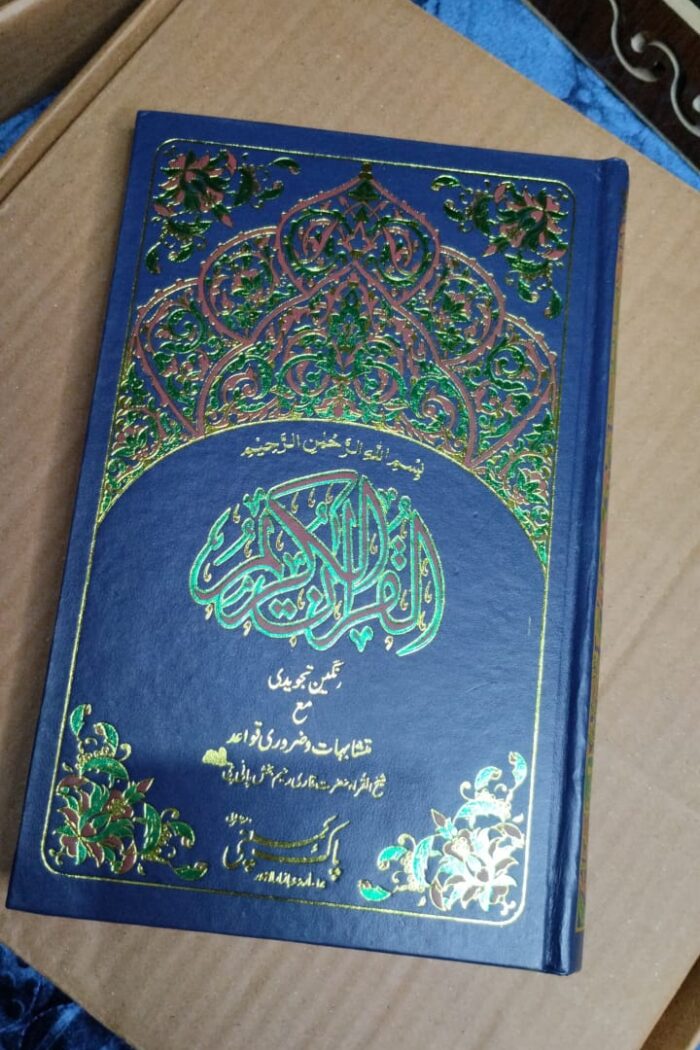 بِسْمِ اللهِ الرَّحْمٰنِ الرَّحِيْمِ
القرآن الكريم
رنگین تجویدی
مع
متشابہات و ضروری قواعد
شیخ القراء حضرت قاری رحیم بخش پانی پتی
پاک کمپنی
اردو بازار لاہور